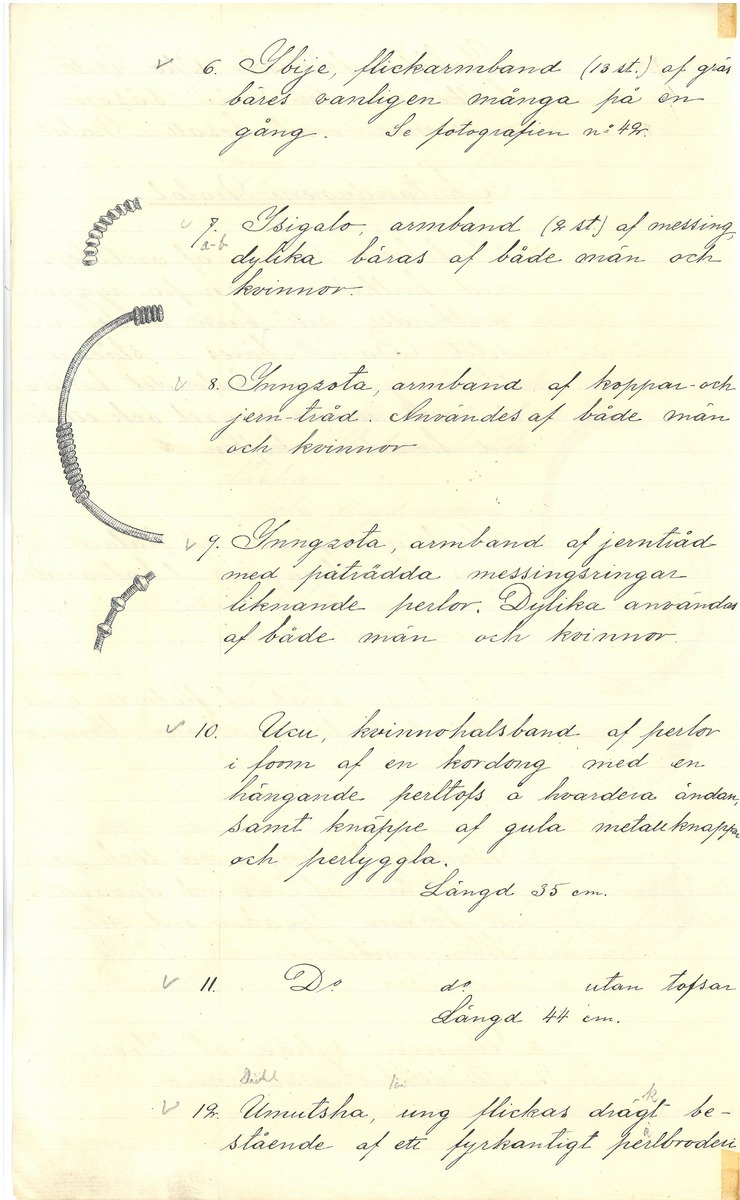 6. Ybije, flickarmband (13 st.) af gräs
bäres vanligen många på en
gång. Se fotografien no 42.
7. Isigalo, armband (2 st.) af messing,
a-b
dylika bäras af både män och
kvinnor.
8. Inngzota, armband af koppar- och
jern-tråd. Användes af både män
och kvinnor
9. Inngzota, armband af jerntråd
med påträdda messingsringar
liknande perlor. Dylika användas
af både män och kvinnor.
10. Ucu, kvinnohalsband af perlor
i foom af en kordong med en
hängande perltofs å hvardera ändan,
samt knäppe af gula metallknappar
och perlyggla.
Längd 35 cm.
11. Do do utan tofsar
Längd 44 cm.
12. Umutsha, ung flickas drägt be-
k
stående af ett fyrkantigt perlbroderi
ä